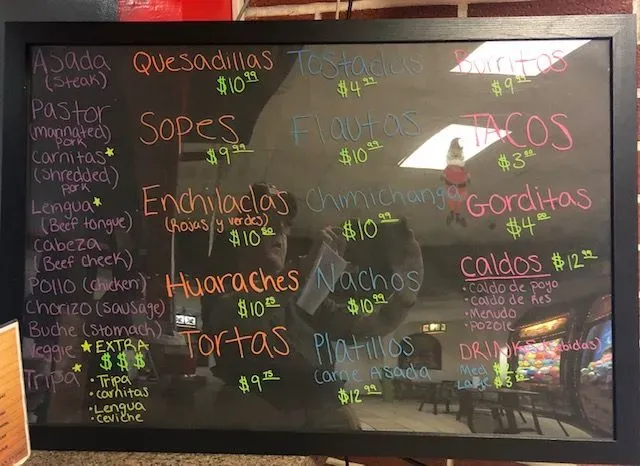 Asada
(steak)
Pastor
(marinated)
pork
carnitas
(shredded)
pork
Lengua
(Beef tongue)
cabeza
(Beef cheek)
Pollo (chicken)
Chorizo (sausage)
Buche (stomach)
Veggie
Tripa
EXTRA
$ $ $
• Tripa
• carnitas
• Lengua
• ceviche
Quesadillas
$10.99
Sopes
$9.99
Enchiladas
(Rojas y verdes)
$10.50
Huaraches
$10.25
Tortas
$9.75
Tostadas
$4.99
Flautas
$10.99
Chimichanga
$10.99
Nachos
$10.99
Platillos
Carne Asada
$12.99
Burritos
$9
TACOS
$3.00
Gorditas
$4.00
caldos $12.99
• Caldo de poyo
• Caldo de Res
• Menudo
• Pozole
DRINKS (Bebidas)
Med $
Large $3